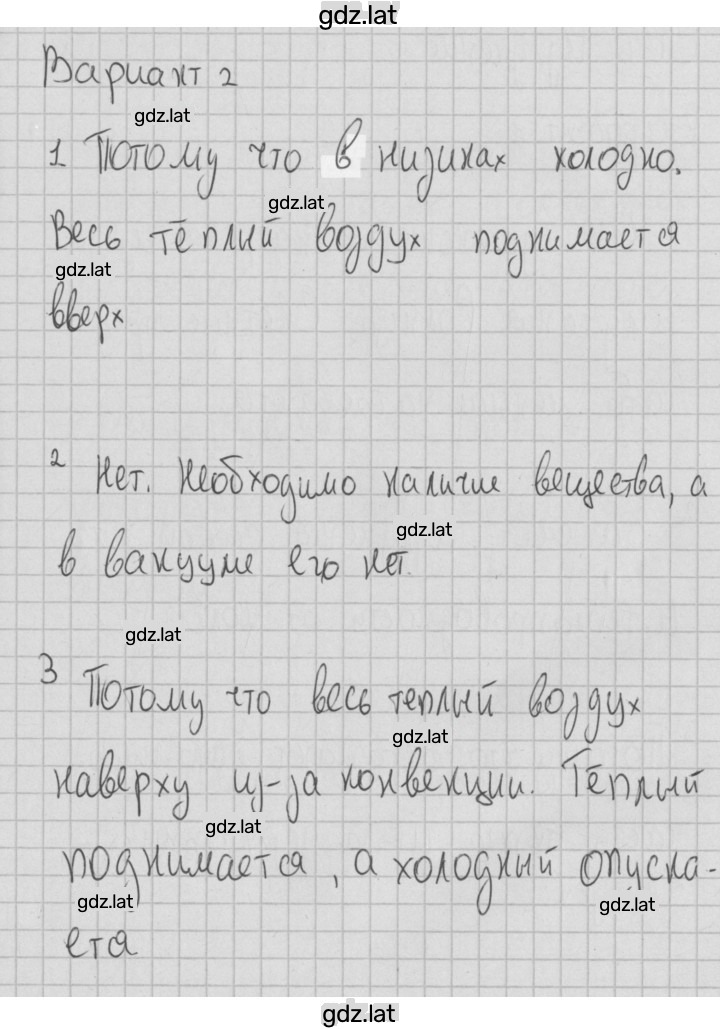 gdz.lat
Вариант 2
gdz.lat
1 Потому что в низинах холодно.
gdz.lat
Весь тёплый воздух поднимается
gdz.lat
вверх
2 Нет. Необходимо наличие вещества, а
gdz.lat
в вакууме его нет.
gdz.lat
3 Потому что весь теплый воздух
gdz.lat
наверху из-за конвекции. Тёплый
gdz.lat
поднимается, а холодный опуска-
gdz.lat gdz.lat
ется
gdz.lat